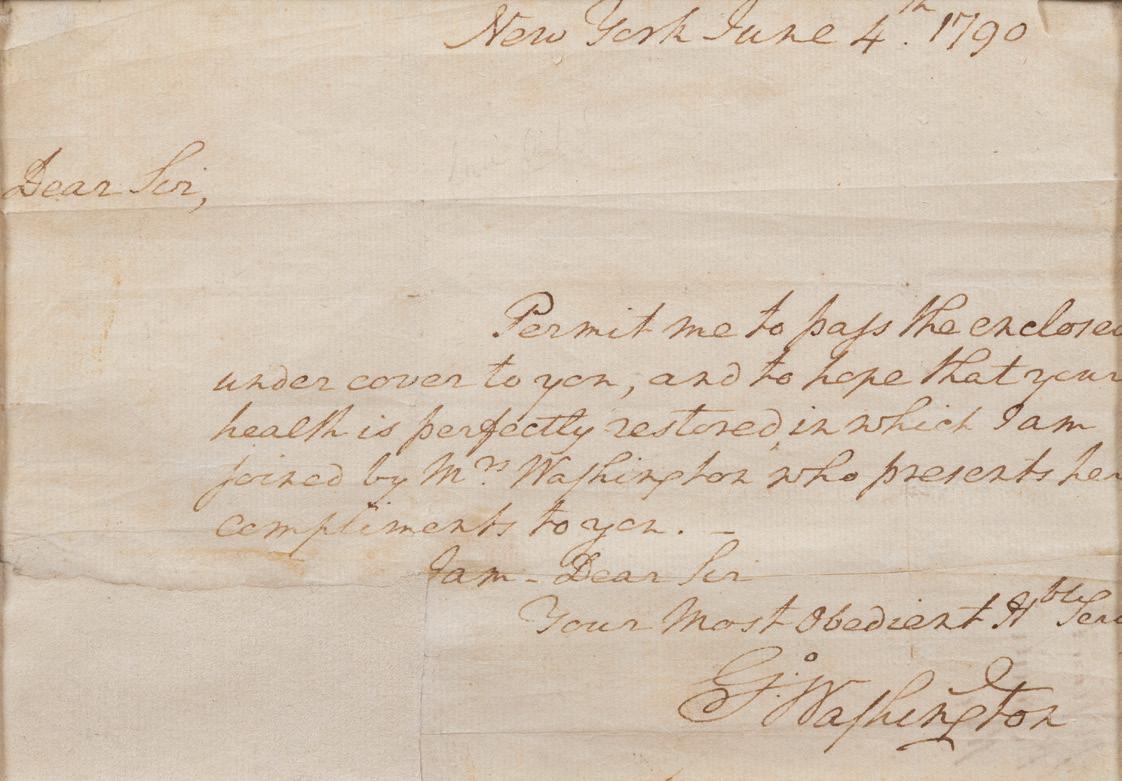 New York June 4th. 1790
Dear Sir,
Permit me to pass the enclosed
under cover to you, and to hope that your
health is perfectly restored, in which I am
joined by Mrs. Washington who presents her
compliments to you. –
I am – Dear Sir
Your Most Obedient Hble Serv
Go: Washington